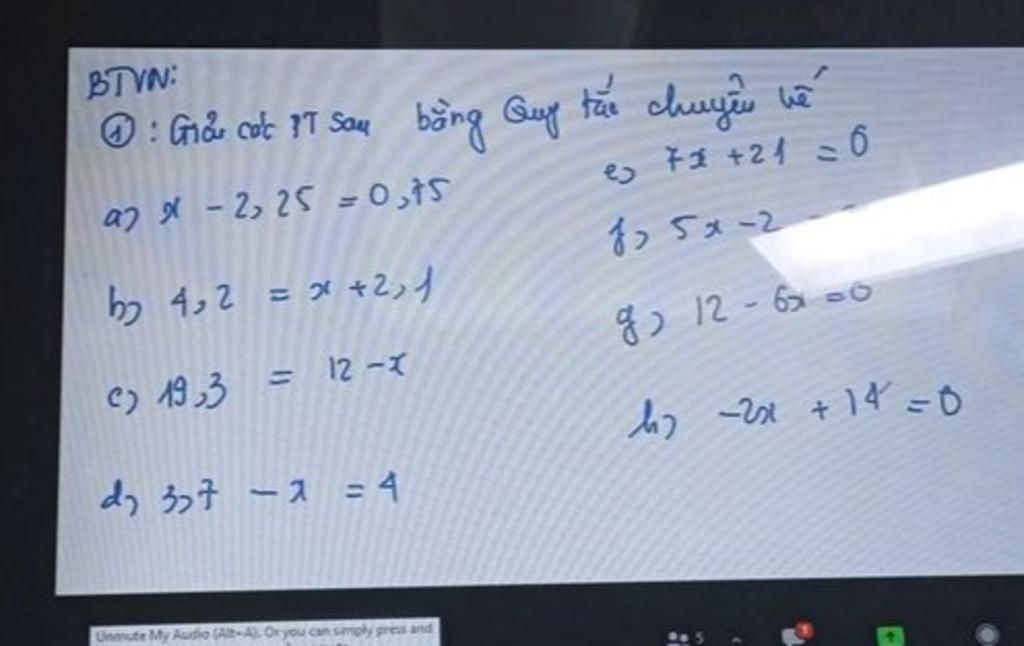 BTVN:
①: Giải các PT sau bằng Quy tắc chuyển vế
a) x - 2,25 = 0,75
b) 4,2 = x + 2,1
c) 19,3 = 12 - x
d) 3,7 - x = 4
e) 7x + 21 = 0
f) 5x - 2
g) 12 - 6x = 0
h) -2x + 14 = 0
Unmute My Audio (Alt+A). Or you can simply press and
5
1